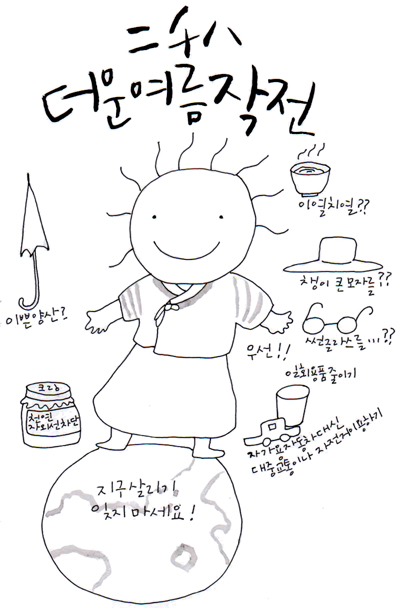 더운여름작전
이열치열??
챙이 큰 모자를??
이쁜양산?
썬글라쓰를...??
우선!!
일회용품줄이기
크림
천연
자외선차단
자가용자동차대신
대중교통이나 자전거이용하기
지구살리기
잊지마세요!